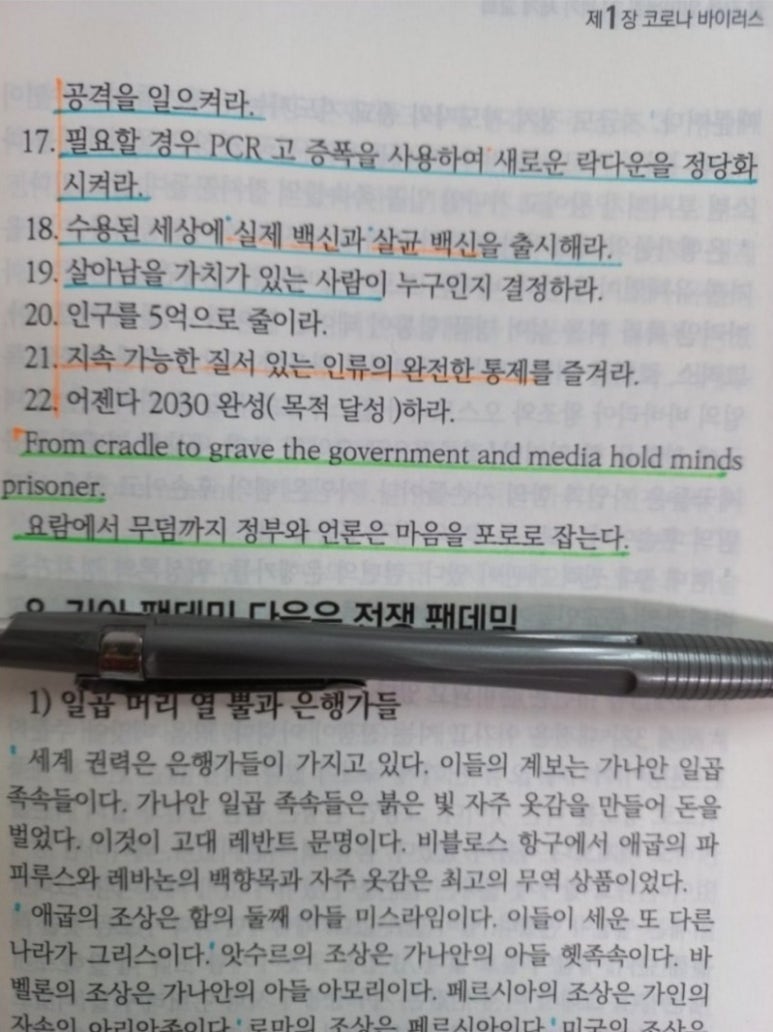 제1장 코로나 바이러스
공격을 일으켜라.
17. 필요할 경우 PCR 고 증폭을 사용하여 새로운 락다운을 정당화
시켜라.
18. 수용된 세상에 실제 백신과 살균 백신을 출시해라.
19. 살아남을 가치가 있는 사람이 누구인지 결정하라.
20. 인구를 5억으로 줄이라.
21. 지속 가능한 질서 있는 인류의 완전한 통제를 즐겨라.
22. 어젠다 2030 완성( 목적 달성 )하라.
From cradle to grave the government and media hold minds
prisoner.
요람에서 무덤까지 정부와 언론은 마음을 포로로 잡는다.
8. 기아 팬데믹 다음은 전쟁 팬데믹
1) 일곱 머리 열 뿔과 은행가들
세계 권력은 은행가들이 가지고 있다. 이들의 계보는 가나안 일곱
족속들이다. 가나안 일곱 족속들은 붉은 빛 자주 옷감을 만들어 돈을
벌었다. 이것이 고대 레반트 문명이다. 비블로스 항구에서 애굽의 파
피루스와 레바논의 백향목과 자주 옷감은 최고의 무역 상품이었다.
애굽의 조상은 함의 둘째 아들 미스라임이다. 이들이 세운 또 다른
나라가 그리스이다. 앗수르의 조상은 가나안의 아들 헷족속이다. 바
벨론의 조상은 가나안의 아들 아모리이다. 페르시아의 조상은 가인의
자손인 아리안족이다. 로마의 조상은 페르시아인이다. 미국의 조상은